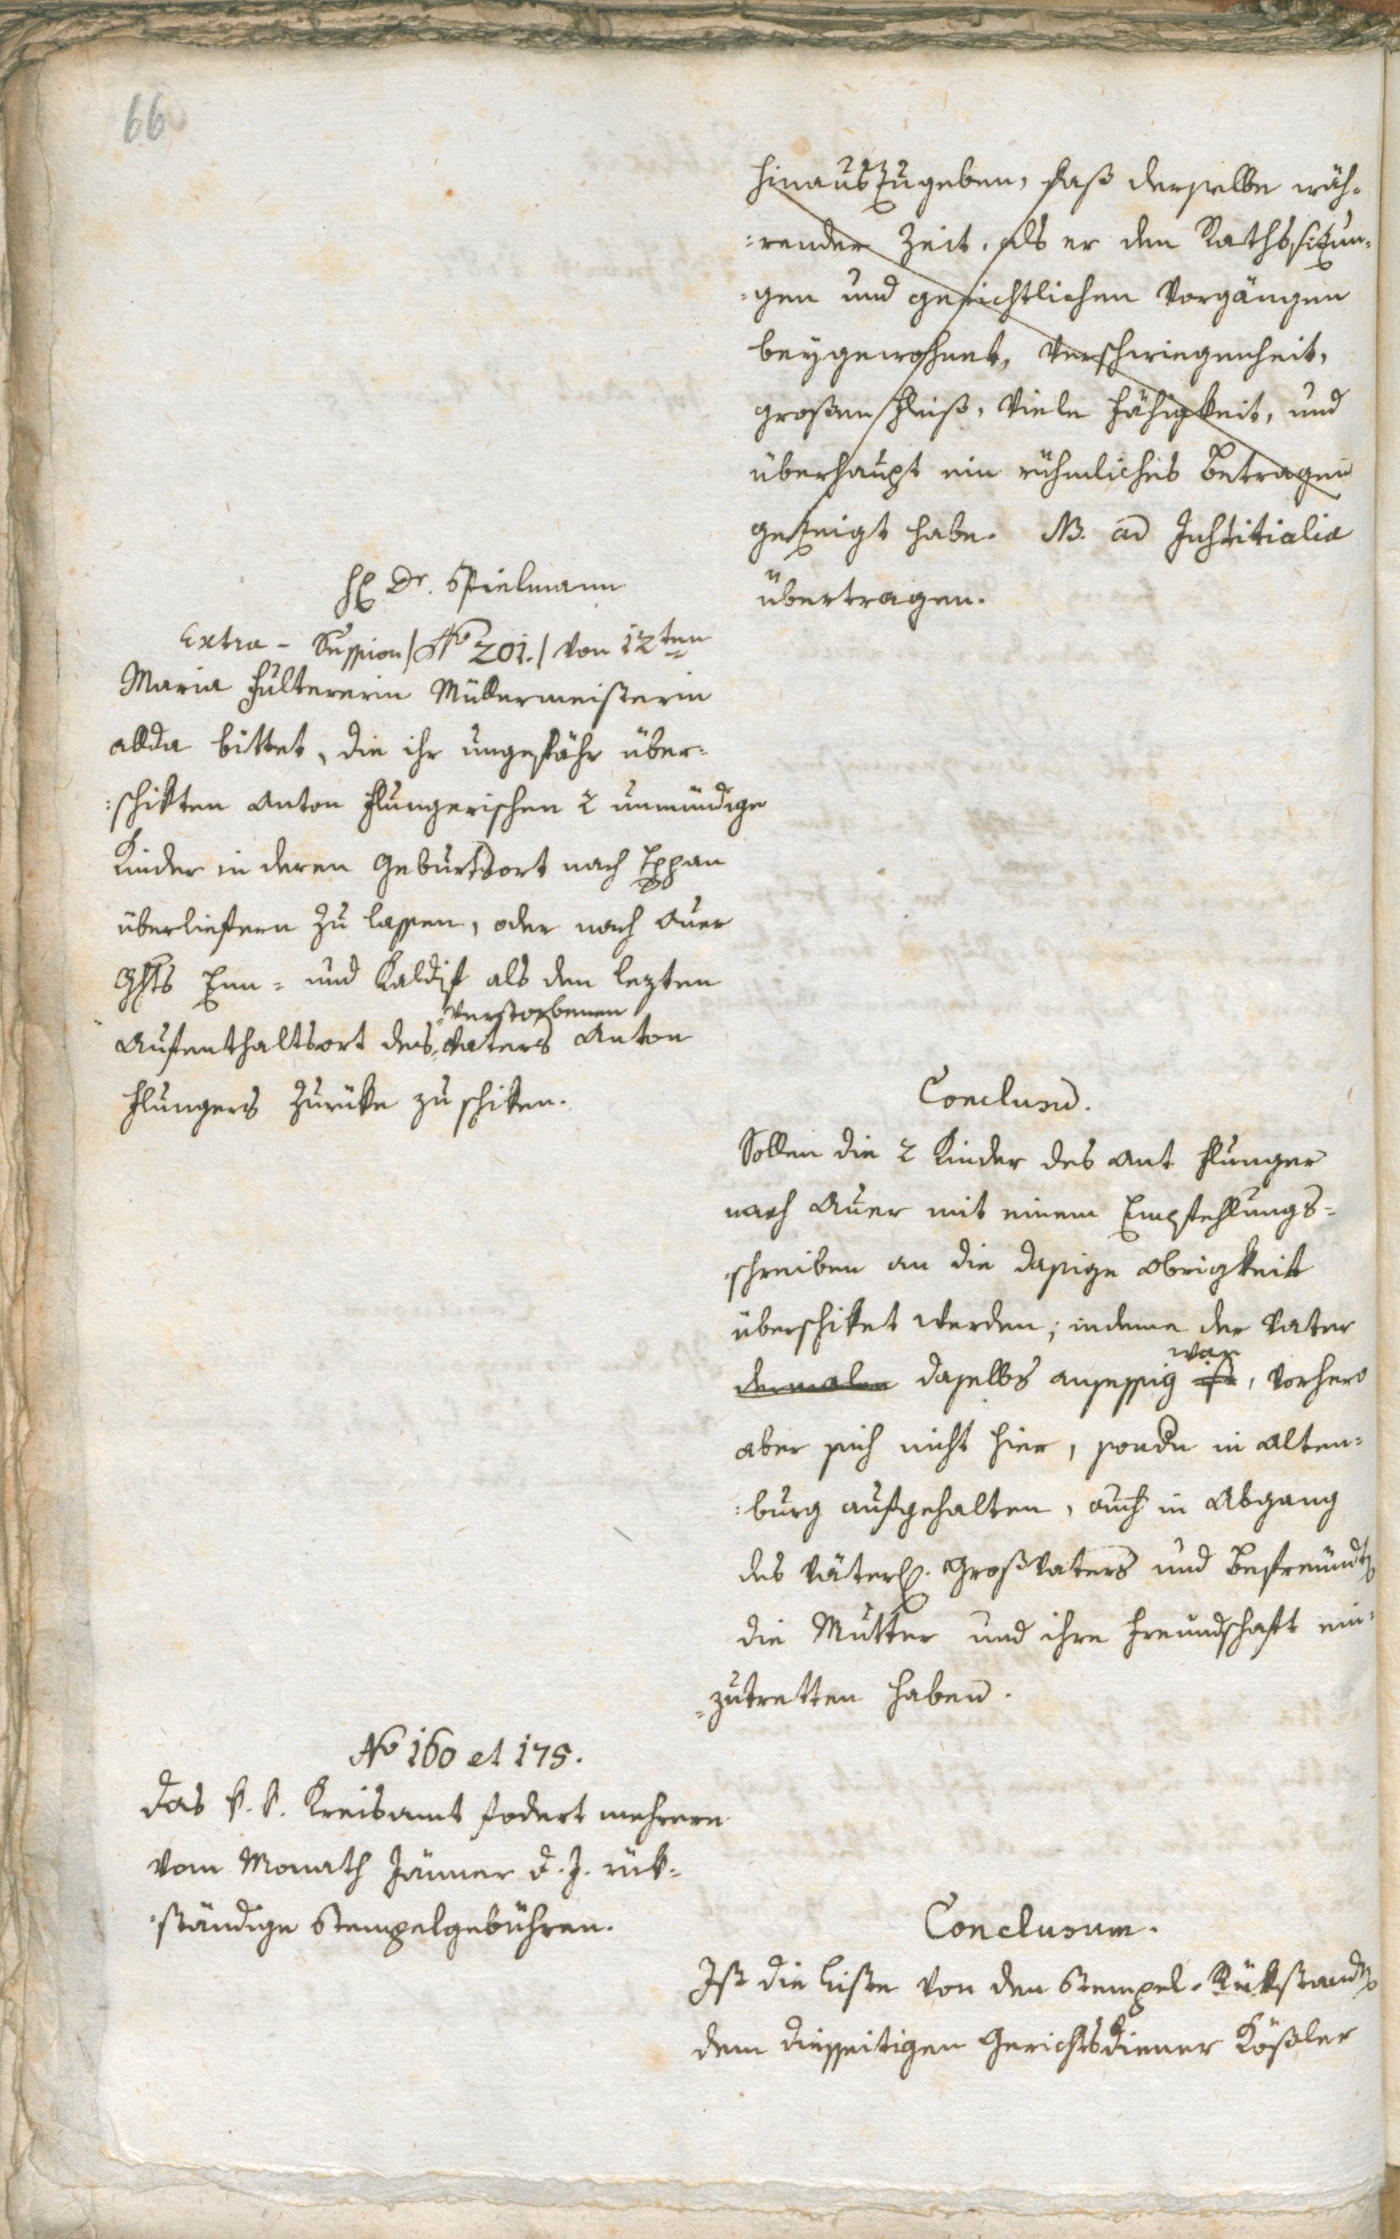 66
hinauszugeben, daß derselbe wäh-
:render Zeit, als er den Rathssitzun-
:gen und gerichtlichen Vorgängen
beygewohnet, Verschwiegenheit,
großen Fleiß, viele Fähigkeit, und
überhaupt ein rühmliches Betragen
gezeigt habe. NB. ad Justitialia
übertragen.
H. Dr. Spielmann
Extra-Session /: No 201. / von 12ten
Maria Fultererin Müllermeisterin
allda bittet, die ihr ungefähr über-
:schikten Anton Flungerischen 2 unmündige
Kinder in deren Geburtsort nach Eppan
überliefern zu lassen, oder nach Auer
Ghts Enn- und Kaldif als den lezten
verstorbenen
Aufenthaltsort des Vaters Anton
Flungers zurüke zu schiken.
Conclusū.
Sollen die 2 Kinder des Ant Flunger
nach Auer mit einem Empfehlungs-
:schreiben an die dasige Obrigkeit
überschiket werden; indeme der Vater
war
dermalen daselbs ansessig ist, vorhero
aber sich nicht hier, sondn in Alten-
:burg aufgehalten, auch in Abgang
des väterl. Großvaters und Befreundtn
die Mutter und ihre Freundschaft ein-
:zutretten haben.
No 160 et 175.
Das k. k. Kreisamt fodert mehrere
vom Monath Jänner d. J. rük-
:ständige Stempelgebühren.
Conclusum.
Ist die Liste von den Stempel-Rükständn
dem diesseitigen Gerichtsdiener Kößler